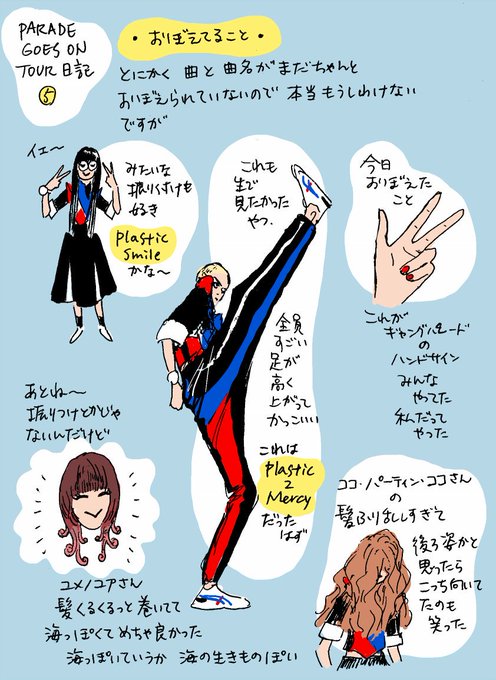 PARADE
GOES ON
TOUR日記
⑤
・おぼえてること・
とにかく 曲と 曲名がまだちゃんと
おぼえられていないので 本当もうしわけない
ですが
イェ〜
みたいな
振りつけも
好き
Plastic
Smile
かな〜
これも
生で
見たかった
やつ.
今日
おぼえた
こと
これが
ギャングパレード
の
ハンドサイン
みんな
やってた
私だって
やった
全員
すごい
足が
高く
上がって
かっこいい
これは
Plastic
2
Mercy
だった
はず
あとね〜
振りつけとかじゃ
ないんだけど
ユメノユアさん
髪くるくるっと巻いてて
海っぽくてめちゃ良かった
海っぽいていうか 海の生きものぽい
ココ・パーティン・ココさん
の
髪ふりほしすぎて
後ろ姿かと
思ったら
こっち向いて
たのも
笑った